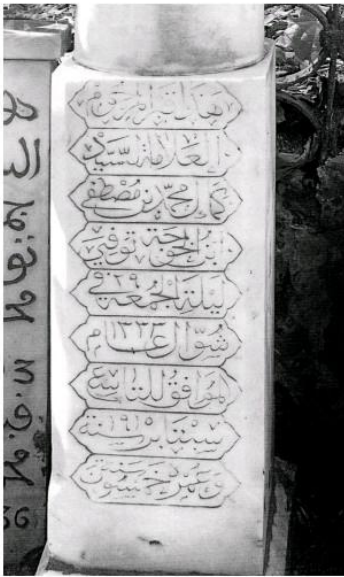 هذا قبر المرحوم
العلامة السيد
كمال محمد بن مصطفى
ابن الخوجة توفي
ليلة الجمعة ٢٩ في
شوال عام ١٣٣٣
الموافق للتاسع
سبتامبر سنة ١٩١٥
وعمره خمسون سنة